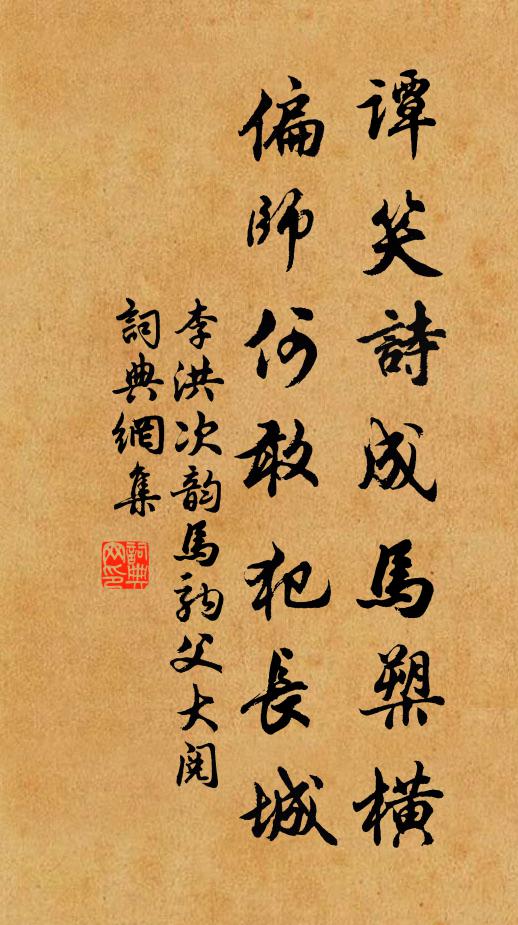 譚笑詩成馬槊橫
偏師何敢犯長城
李洪次韵馬駒父大閱
詞典網集
詞典网印